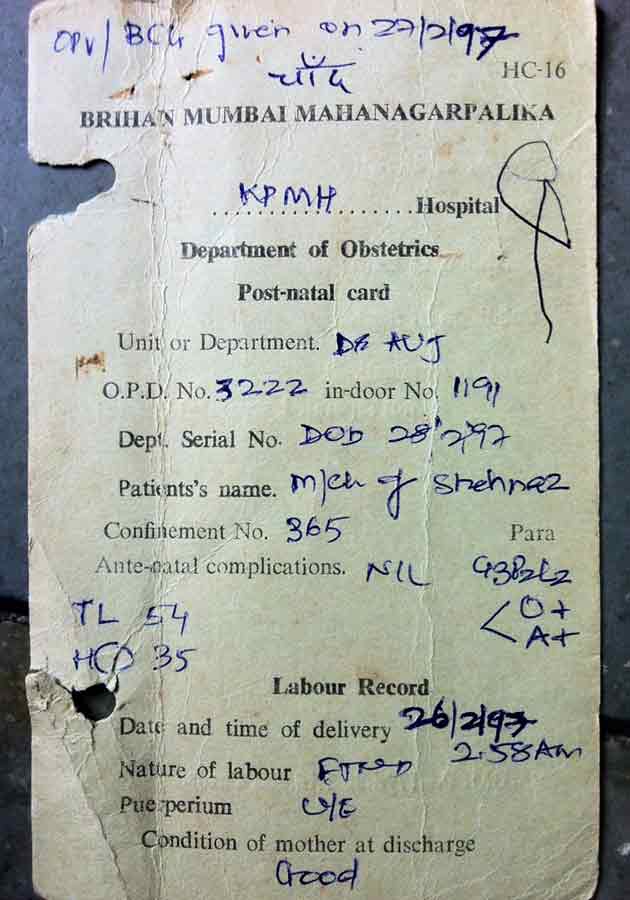 OPV/BCG given on 27/2/97
चाँद
HC-16
BRIHAN MUMBAI MAHANAGARPALIKA
KPMH ..................Hospital
Department of Obstetrics
Post-natal card
Unit or Department. Dr AUJ
O.P.D. No. 3222 in-door No. 1191
Dept. Serial No. DOD 28/2/97
Patients's name. M/ch of Shehnaz
Confinement No. 365 Para
Ante-natal complications. NIL G3P2L2
TL 54 O+
HCO 35 A+
Labour Record
Date and time of delivery 26/2/97
2.58AM
Nature of labour FTND
Puerperium U/E
Condition of mother at discharge
Good